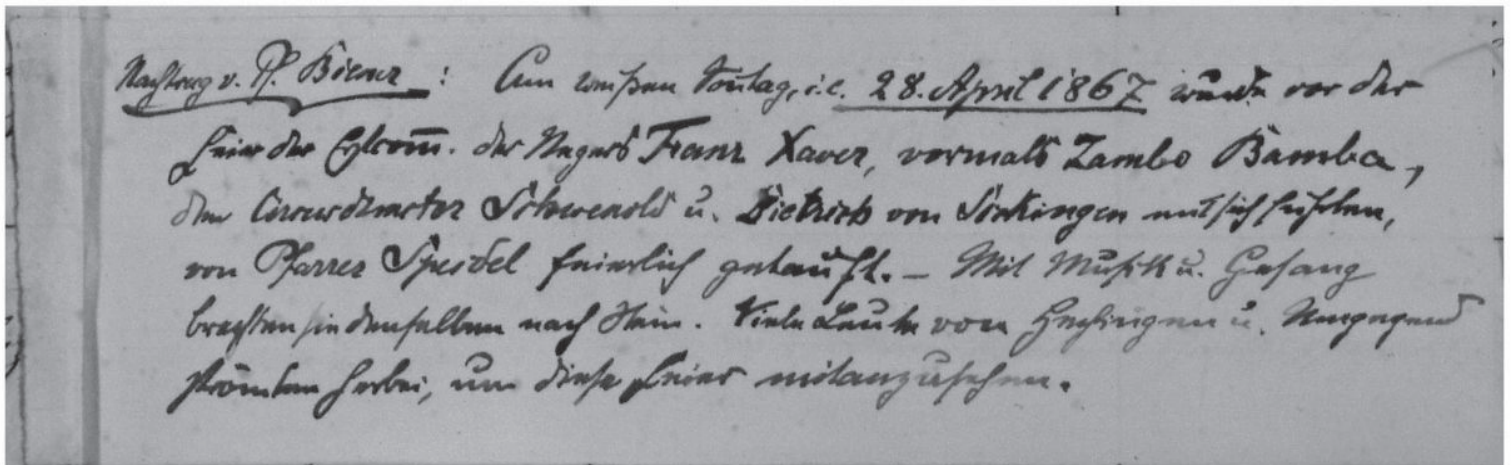 Nachtrag v. Pf. Biener : Am weißen Sonntag, i.e. 28. April 1867 wurde vor der
Feier der Erstcom̄. der Negers Franz Xaver, vormals Zambo Bamba,
den u. Dietrich von mit sich führten,
von Pfarrer Speidel feierlich getauft. – Mit Musik u. Gesang
brachten sie denselben nach Stein. Viele Leute von Hechingen u. Umgegend
strömten herbei, um diese Feier mitanzusehen.